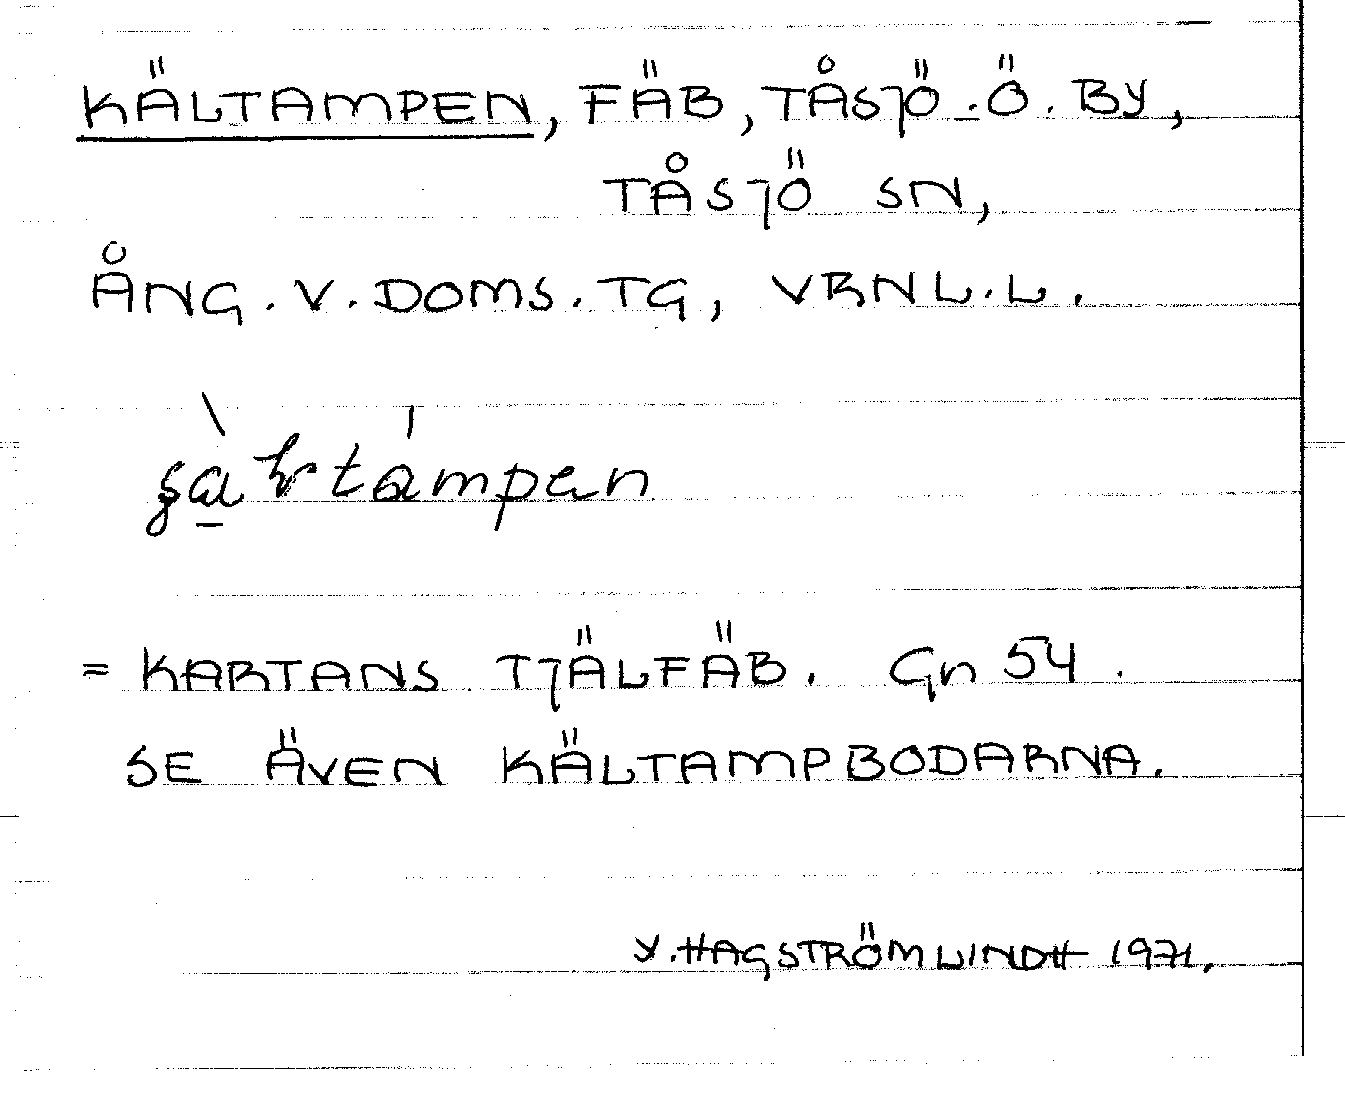 KÄLTAMPEN, FÄB, TÅSJÖ-Ö. BY,
TÅSJÖ SN,
ÅNG. V. DOMS. TG, VRNL.L.
= KARTANS TJÄLFÄB. Gn 54.
SE ÄVEN KÄLTAMPBODARNA.
Y. HAGSTRÖM LINDH 1971.